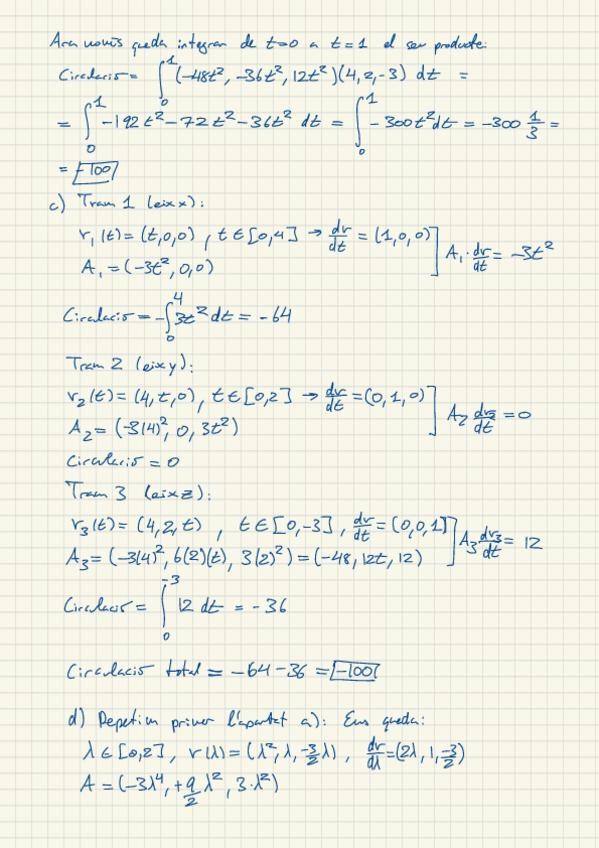 Ara només queda integrar de t=0 a t=1 el seu producte:
Circulació = ∫₀¹ (-48t², -36t², 12t²)(4, 2, -3) dt =
= ∫₀¹ -192t² - 72t² - 36t² dt = ∫₀¹ -300t² dt = -300 1/3 =
= -100
c) Tram 1 (eix x):
r₁(t) = (t,0,0) , t∈[0,4] → dr/dt = (1,0,0)
A₁ = (-3t², 0,0)
A₁·dr/dt = -3t²
Circulació = -∫₀⁴ 3t² dt = -64
Tram 2 (eix y):
r₂(t) = (4,t,0) , t∈[0,2] → dr/dt = (0,1,0)
A₂ = (-3(4)², 0, 3t²)
A₂ dr₂/dt = 0
Circulació = 0
Tram 3 (eix z):
r₃(t) = (4,2,t) , t∈[0,-3] , dr/dt = (0,0,1)
A₃ = (-3(4)², 6(2)(t), 3(2)²) = (-48, 12t, 12)
A₃ dr₃/dt = 12
Circulació = ∫₀⁻³ 12 dt = -36
Circulació total = -64 - 36 = -100
d) Repetim primer l'apartat a): Ens queda:
λ∈[0,2] , r(λ) = (λ², λ, -3/2 λ) , dr/dλ = (2λ, 1, -3/2)
A = (-3λ⁴, +9/2 λ², 3·λ²)